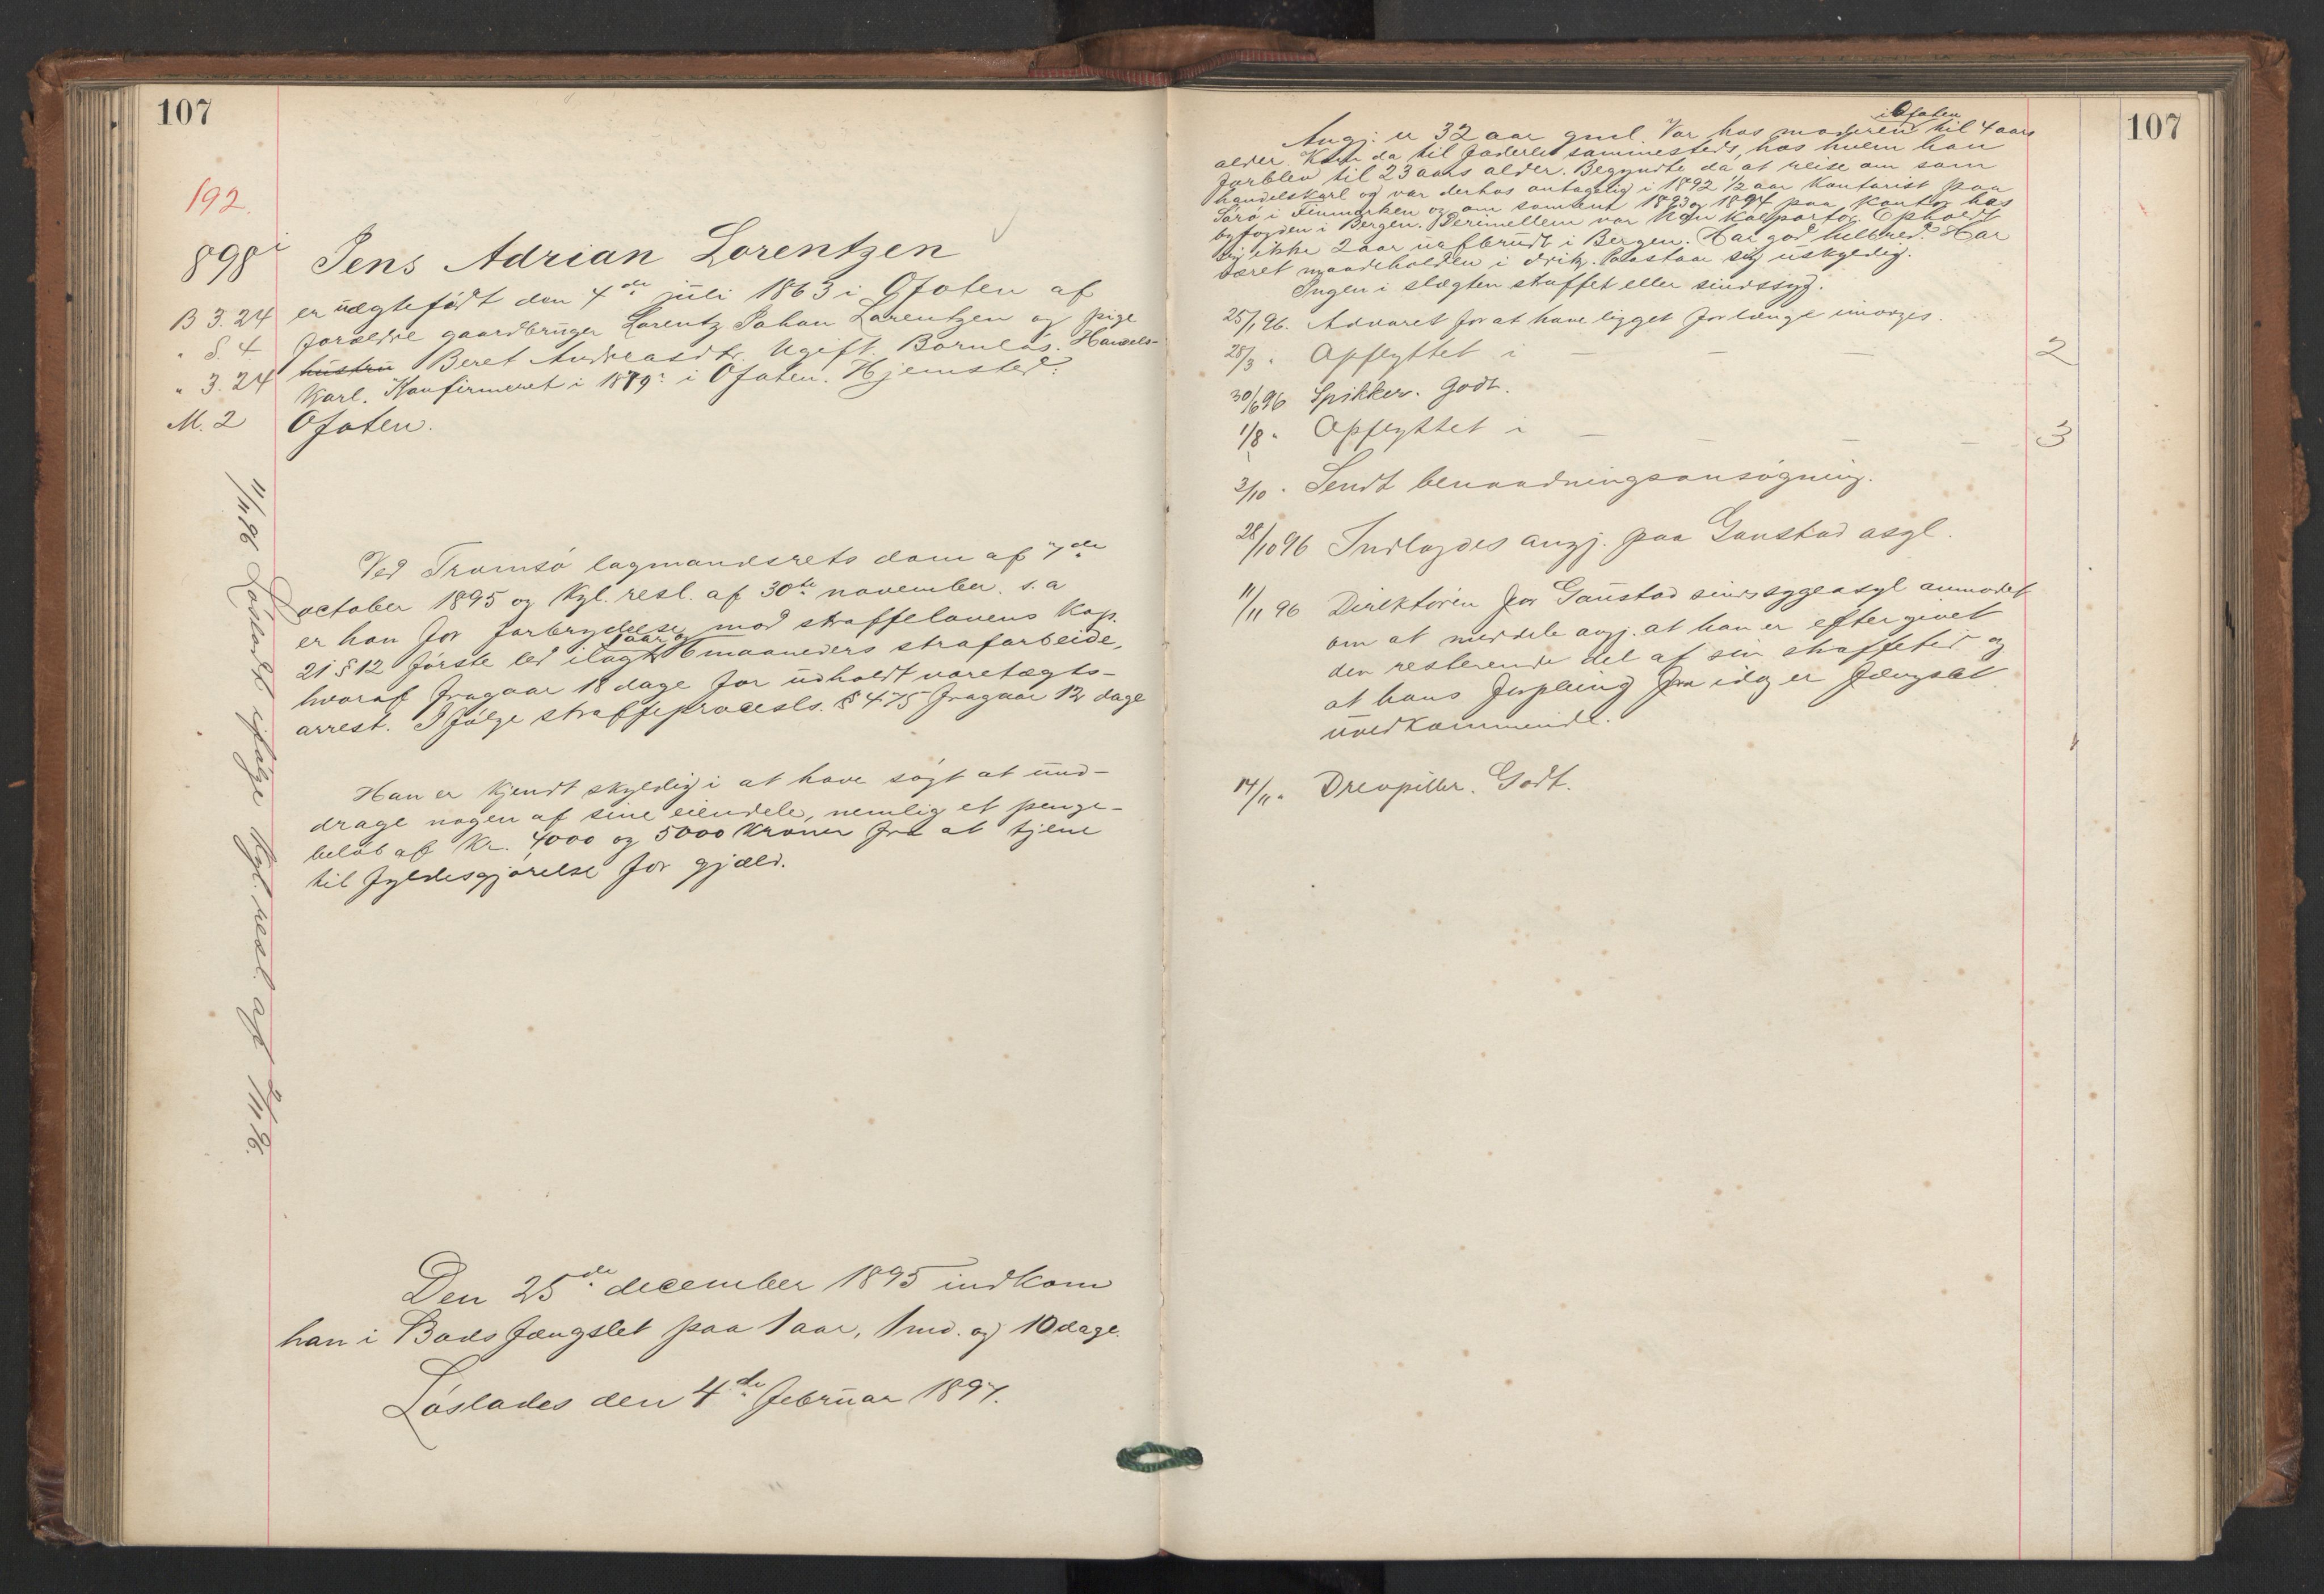 107
192.
898
Jens Adrian Lorentzen
B 3. 24 er uægtefødt den 4de juli 1863 i Ofoten af
" S. 4 forældre gaardbruger Lorentz Johan Lorentzen og pige
" 3. 24 hustru Beret Andreasdtr. Ugift. Barnløs. Handels-
karl. Konfirmeret i 1879 i Ofoten. Hjemsted:
M. 2 Ofoten.
11/11 96 Løsladt ifølge Kgl. resl. af 2/11 96.
Ved Tromsø lagmandsrets dom af 7de
october 1895 og Kgl. resl. af 30te november s. a
er han for forbrydelse mod straffelovens Kap.
21 § 12 første led ilagt 1 aar og 6 maaneders strafarbeide,
hvoraf fragaar 18 dage for udholdt varetægts-
arrest. Ifølge straffeprocesls. § 475 fragaar 12 dage
Han er kjendt skyldig i at have søgt at und-
drage nogen af sine eiendele, nemlig et penge-
beløb af Kr. 4000 og 5000 Kroner fra at tjene
til fyldesgjørelse for gjæld.
Den 25de december 1895 indkom
han i Bodsfængslet paa 1 aar, 1 md. og 10 dage.
Løslades den 4de februar 1897.
107
i Ofoten
Angj. er 32 aar gml. Var hos moderen til 4 aars
alder. Kom da til faderen sammesteds, hos hvem han
forblev til 23 aars alder. Begyndte da at reise om som
handelskarl og var derhos antagelig i 1892 1/2 aar Kontorist paa
Sørø i Finmarken og om somrene 1893 og 1894 paa Kontor hos
byfogden i Bergen. Derimellem var han Kolportør. Opholdt
sig ikke 2 aar uafbrudt i Bergen. Har god helbred. Har
været maadeholden i drik. Paastaar sig uskyldig.
Ingen i slægten straffet eller sindssyg.
25/1 96. Advaret for at have ligget for længe imorges.
28/3 " Opflyttet i — — — 2
30/6 96 Spikker. Godt.
1/8 " Opflyttet i — — — — 3
3/10 " Sendt benaadningsansøgning.
28/10 96 Indlagdes angj. paa Gaustad asyl.
11/11 96 Direktøren for Gaustad sindssygeasyl anmodet
om at meddele angj. at han er eftergivet
den resterende del af sin straffetid og
at hans forpleing fra idag er fængslet
uvedkommende.
14/11 " Drevpiller. Godt.